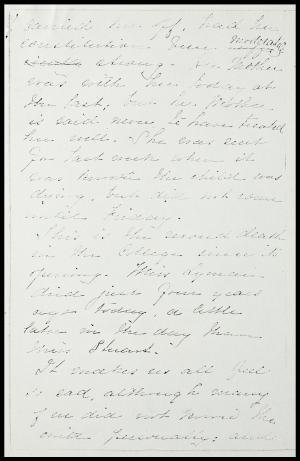 carried her off, had her
constitution been moderately
strong. Her Mother
was with her today at
the last; but her Mother
is said never to have treated
her well. She was sent
for last week when it
was known the child was
dying, but did not come
until Friday.
This is the second death
in the College since its
opening. Miss
died just four years
ago today, a little
later in the day than
Miss Stuart.
It makes us all feel
so sad, although many
of us did not know the
child personally; and